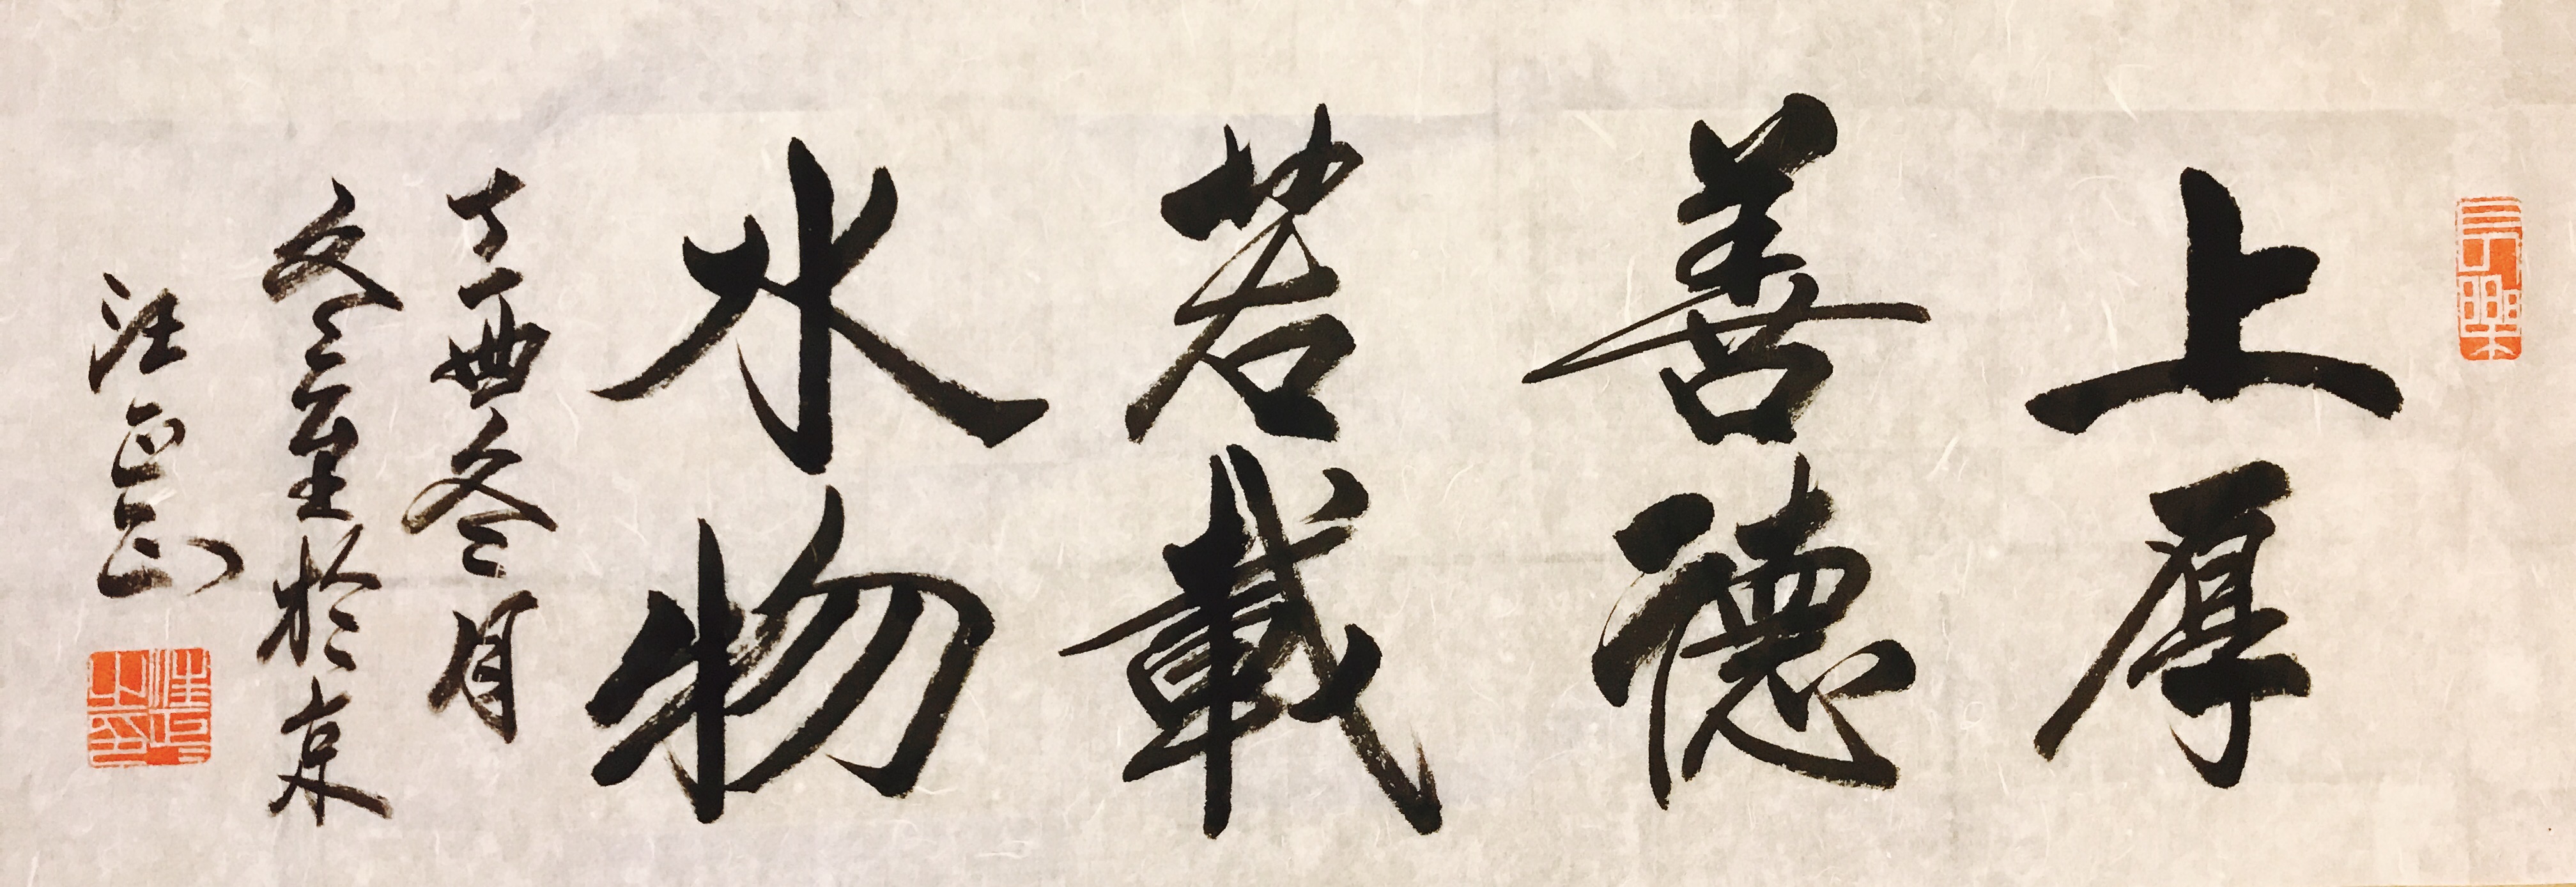 上善若水
厚德載物
丁酉冬月
冬至於京
汪正